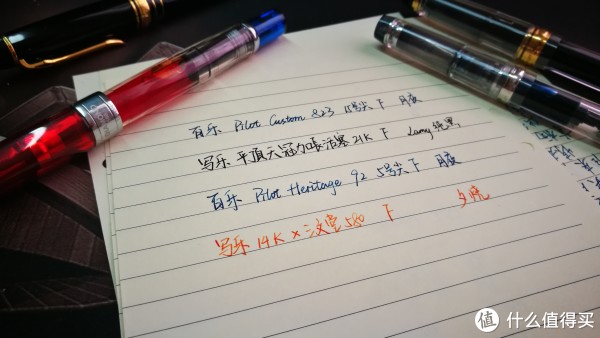 百乐 Pilot Custom 823 15号尖 F 月夜
写乐 平顶大 活塞 21K F Lamy 纯黑
百乐 Pilot Heritage 92 5号尖 F 月夜
写乐 14K × 三文堂 580 F 夕焼
值 什么值得买